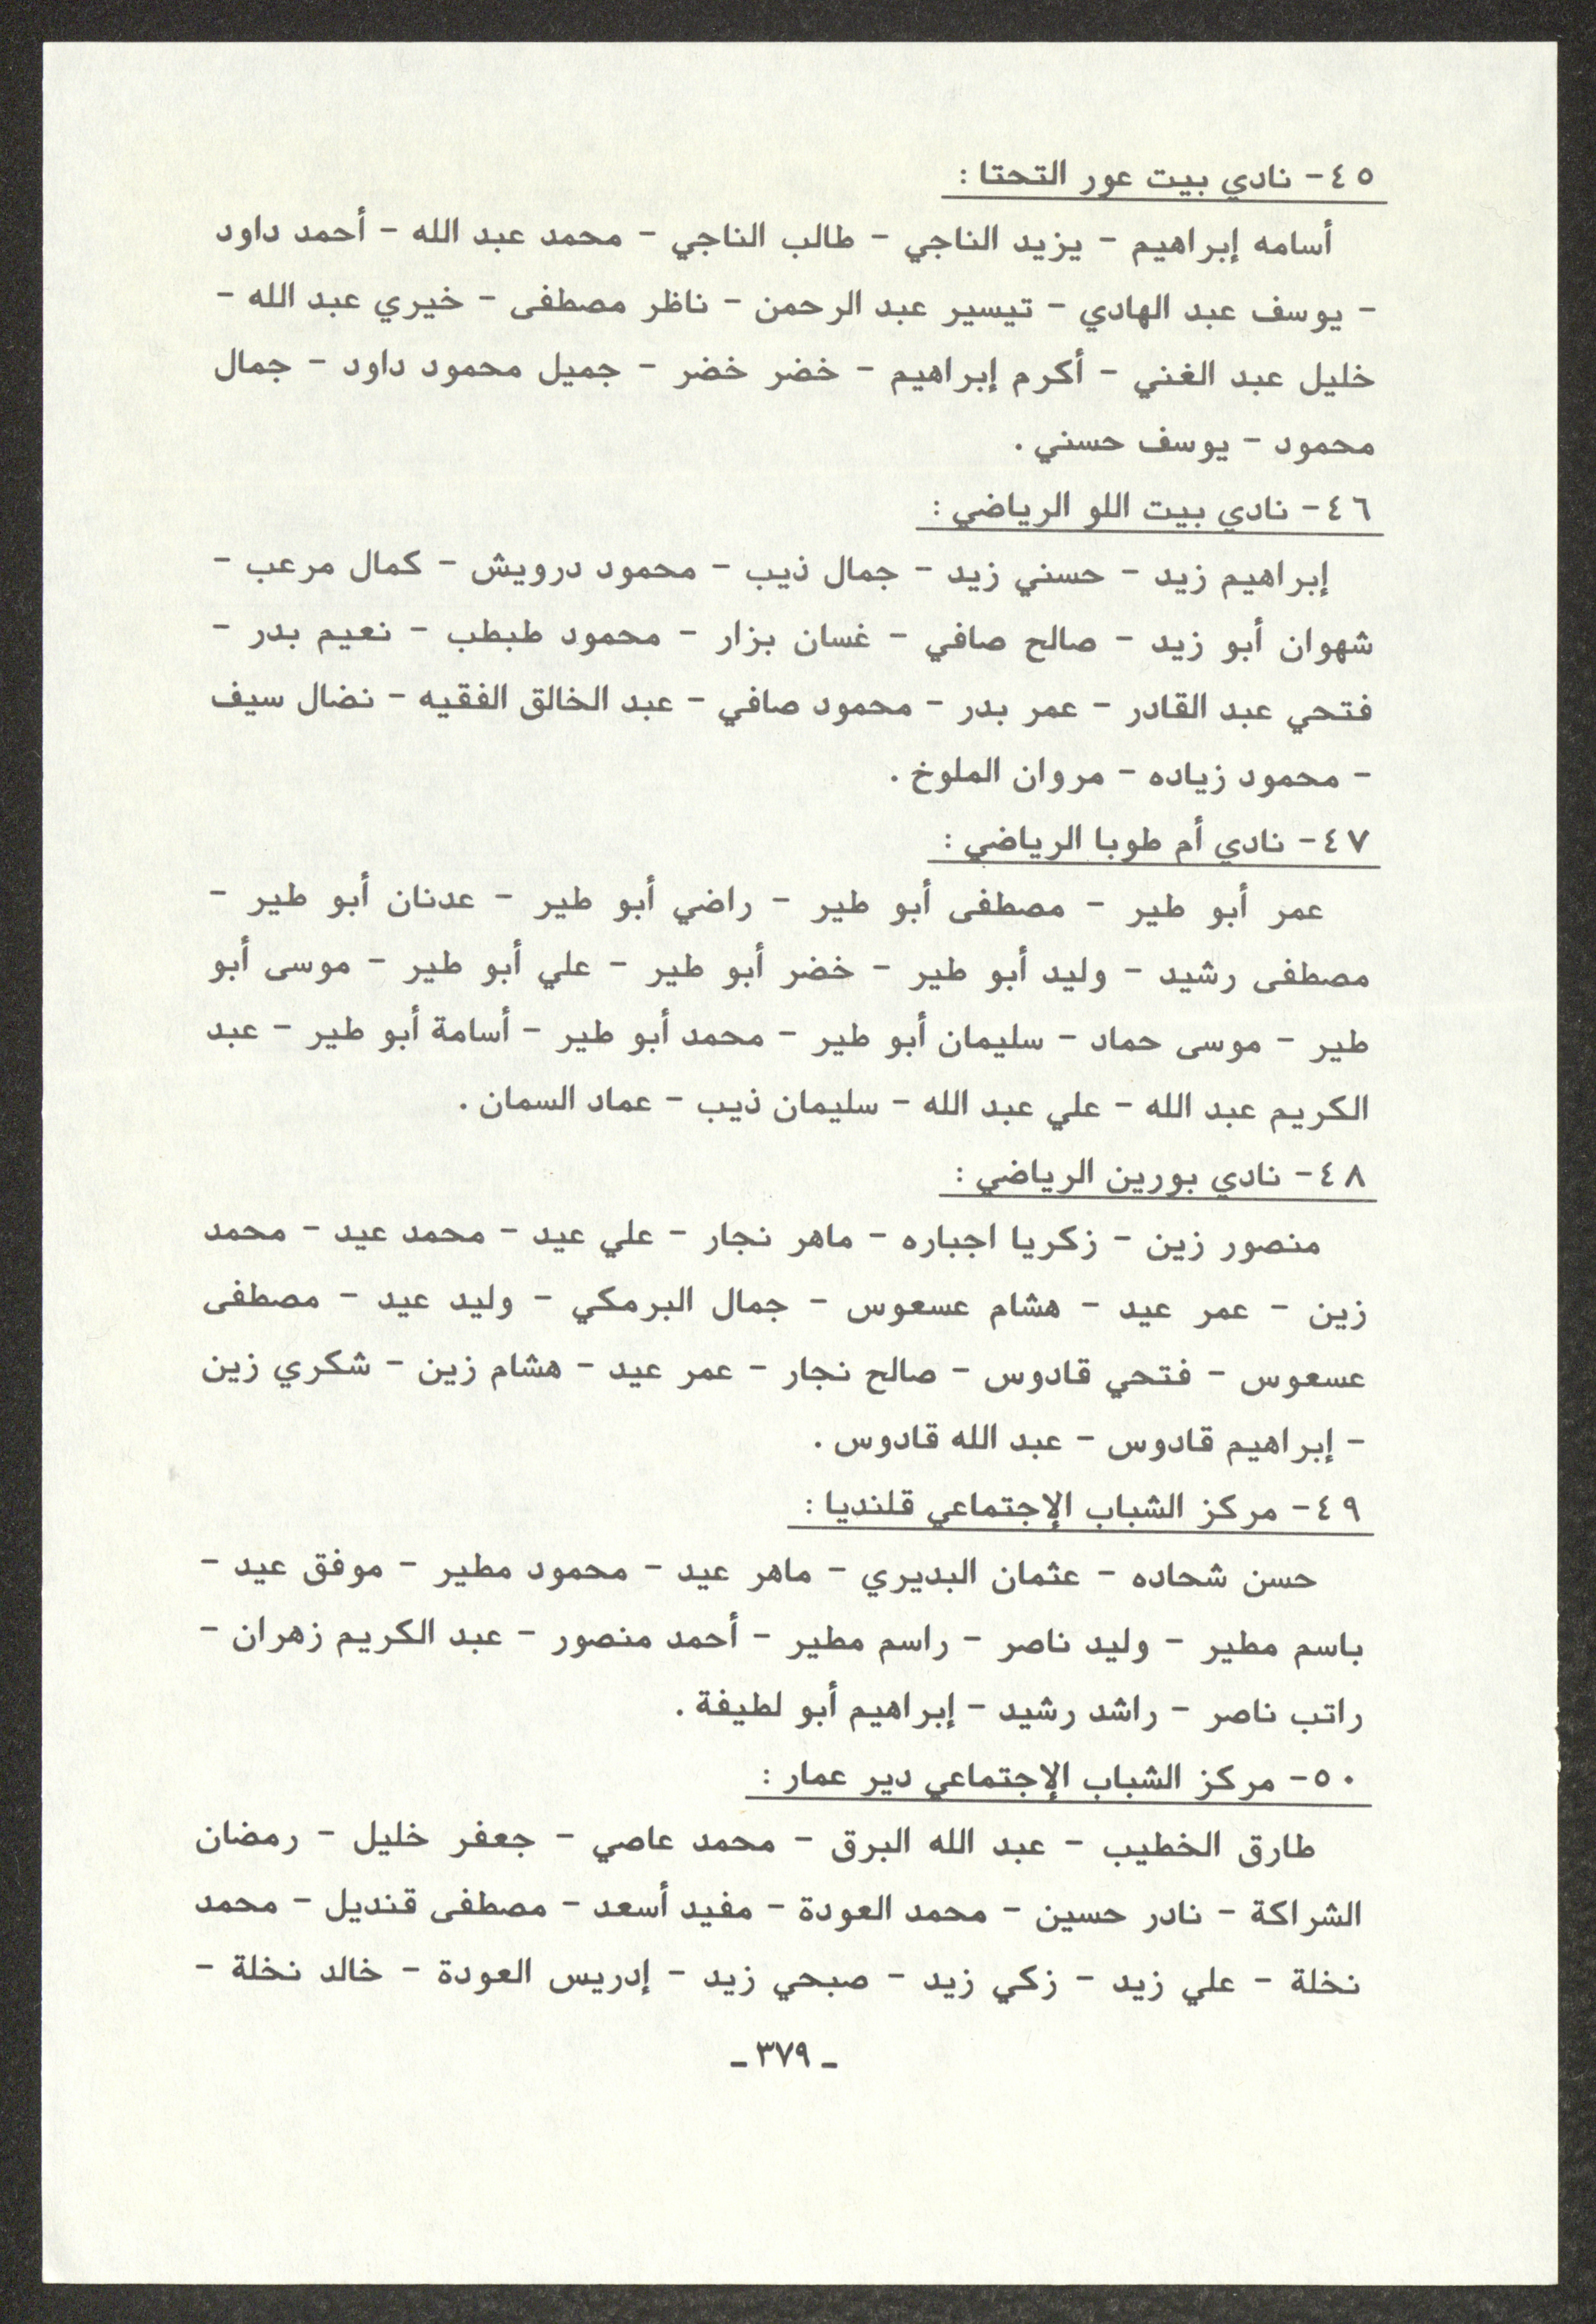 ٤٥- نادي بيت عور التحتا :
أسامه إبراهيم - يزيد الناجي - طالب الناجي - محمد عبد الله - أحمد داود
- يوسف عبد الهادي - تيسير عبد الرحمن - ناظر مصطفى - خيري عبد الله -
خليل عبد الغني - أكرم إبراهيم - خضر خضر - جميل محمود داود - جمال
محمود - يوسف حسني .
٤٦- نادي بيت اللو الرياضي :
إبراهيم زيد - حسني زيد - جمال ذيب - محمود درويش - كمال مرعب -
شهوان أبو زيد - صالح صافي - غسان بزار - محمود طبطب - نعيم بدر -
فتحي عبد القادر - عمر بدر - محمود صافي - عبد الخالق الفقيه - نضال سيف
- محمود زياده - مروان الملوخ .
٤٧- نادي أم طوبا الرياضي :
عمر أبو طير - مصطفى أبو طير - راضي أبو طير - عدنان أبو طير -
مصطفى رشيد - وليد أبو طير - خضر أبو طير - علي أبو طير - موسى أبو
طير - موسى حماد - سليمان أبو طير - محمد أبو طير - أسامة أبو طير - عبد
الكريم عبد الله - علي عبد الله - سليمان ذيب - عماد السمان .
٤٨- نادي بورين الرياضي :
منصور زين - زكريا اجباره - ماهر نجار - علي عيد - محمد عيد - محمد
زين - عمر عيد - هشام عسعوس - جمال البرمكي - وليد عيد - مصطفى
عسعوس - فتحي قادوس - صالح نجار - عمر عيد - هشام زين - شكري زين
- إبراهيم قادوس - عبد الله قادوس .
٤٩- مركز الشباب الإجتماعي قلنديا :
حسن شحاده - عثمان البديري - ماهر عيد - محمود مطير - موفق عيد -
باسم مطير - وليد ناصر - راسم مطير - أحمد منصور - عبد الكريم زهران -
راتب ناصر - راشد رشيد - إبراهيم أبو لطيفة .
٥٠- مركز الشباب الإجتماعي دير عمار :
طارق الخطيب - عبد الله البرق - محمد عاصي - جعفر خليل - رمضان
الشراكة - نادر حسين - محمد العودة - مفيد أسعد - مصطفى قنديل - محمد
نخلة - علي زيد - زكي زيد - صبحي زيد - إدريس العودة - خالد نخلة -
- ٣٧٩ -